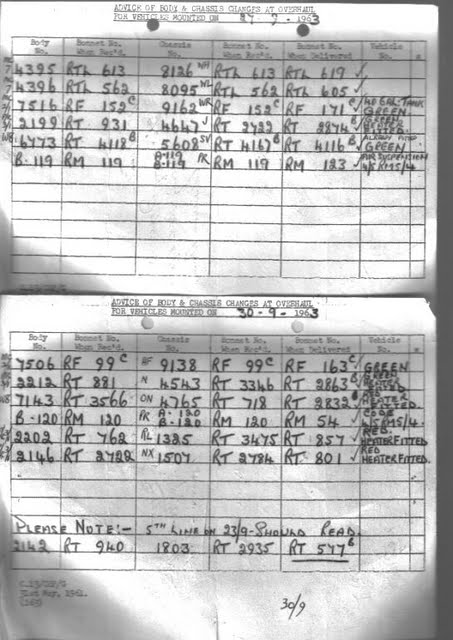 ADVICE OF BODY & CHASSIS CHANGES AT OVERHAUL
FOR VEHICLES MOUNTED ON 27-9-1963
Body No. Bonnet No. When Rec'd. Chassis No. Bonnet No. When Rec'd. Bonnet No. When Delivered Vehicle No.
4395 RTL 613 8126 WH RTL 613 RTL 619 ✓
4396 RTL 562 8095 WL RTL 562 RTL 605 ✓
7516 RF 152 C 9162 WR RF 152 C RF 171 C ✓ 40 GAL. TANK GREEN
2199 RT 931 4647 J RT 2722 RT 2874 B ✓ GREEN FITTED
6773 RT 4118 B 5608 SV RT 4167 B RT 4116 B ✓ FITTED GREEN
B-119 RM 119 A-119 B-119 PK RM 119 RM 123 ✓ AIR SUSPENSION 4/5 RMS/4
ADVICE OF BODY & CHASSIS CHANGES AT OVERHAUL
FOR VEHICLES MOUNTED ON 30-9-1963
Body No. Bonnet No. When Rec'd. Chassis No. Bonnet No. When Rec'd. Bonnet No. When Delivered Vehicle No.
7506 RF 99 C HF 9138 RF 99 C RF 163 C ✓ GREEN
2212 RT 881 N 4543 RT 3346 RT 2863 B ✓ GREEN HEATER FITTED
7143 RT 3566 ON 4765 RT 718 RT 2832 B ✓ RED HEATER FITTED.
B-120 RM 120 PK A-120 B-120 RM 120 RM 54 ✓ CODE 4/5 RMS/4
2202 RT 762 RL 1325 RT 3475 RT 857 ✓ RED. HEATER FITTED.
2146 RT 2722 NX 1507 RT 2784 RT 801 ✓ RED HEATER FITTED.
PLEASE NOTE:- 5TH LINE ON 23/9-SHOULD READ.
2142 RT 940 1803 RT 2935 RT 577 B
31st May, 1961.
(163)
30/9